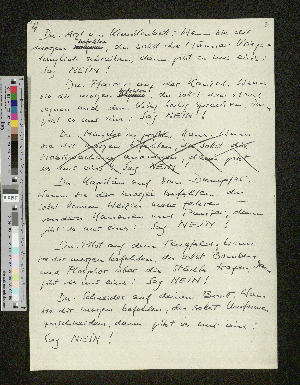 Du. Arzt am Krankenbett. Wenn sie dir
morgen befehlen, du sollst die Männer kriegs-
tauglich schreiben, dann gibt es nur eins:
Sag NEIN!
Du. Pfarrer auf der Kanzel. Wenn
sie dir morgen befehlen, du sollst den
segnen und den Krieg heilig sprechen, dann
gibt es nur eins: Sag NEIN!
Du. Wenn
sie dir morgen befehlen, du sollst
dann gibt
es nur eins: Sag NEIN!
Du. Kapitän auf dem Dampfer.
Wenn sie dir morgen befehlen, du
sollst keinen Weizen mehr fahren –
sondern Kanonen und Panzer, dann
gibt es nur eins: Sag NEIN!
Du. Pilot auf dem Flugfeld. Wenn
sie dir morgen befehlen, du sollst Bomben
und Phosphor über die Städte tragen, dann
gibt es nur eins: Sag NEIN!
Du. Schneider auf deinem Brett. Wenn
sie dir morgen befehlen, du sollst Uniformen
zuschneiden, dann gibt es nur eins:
Sag NEIN!